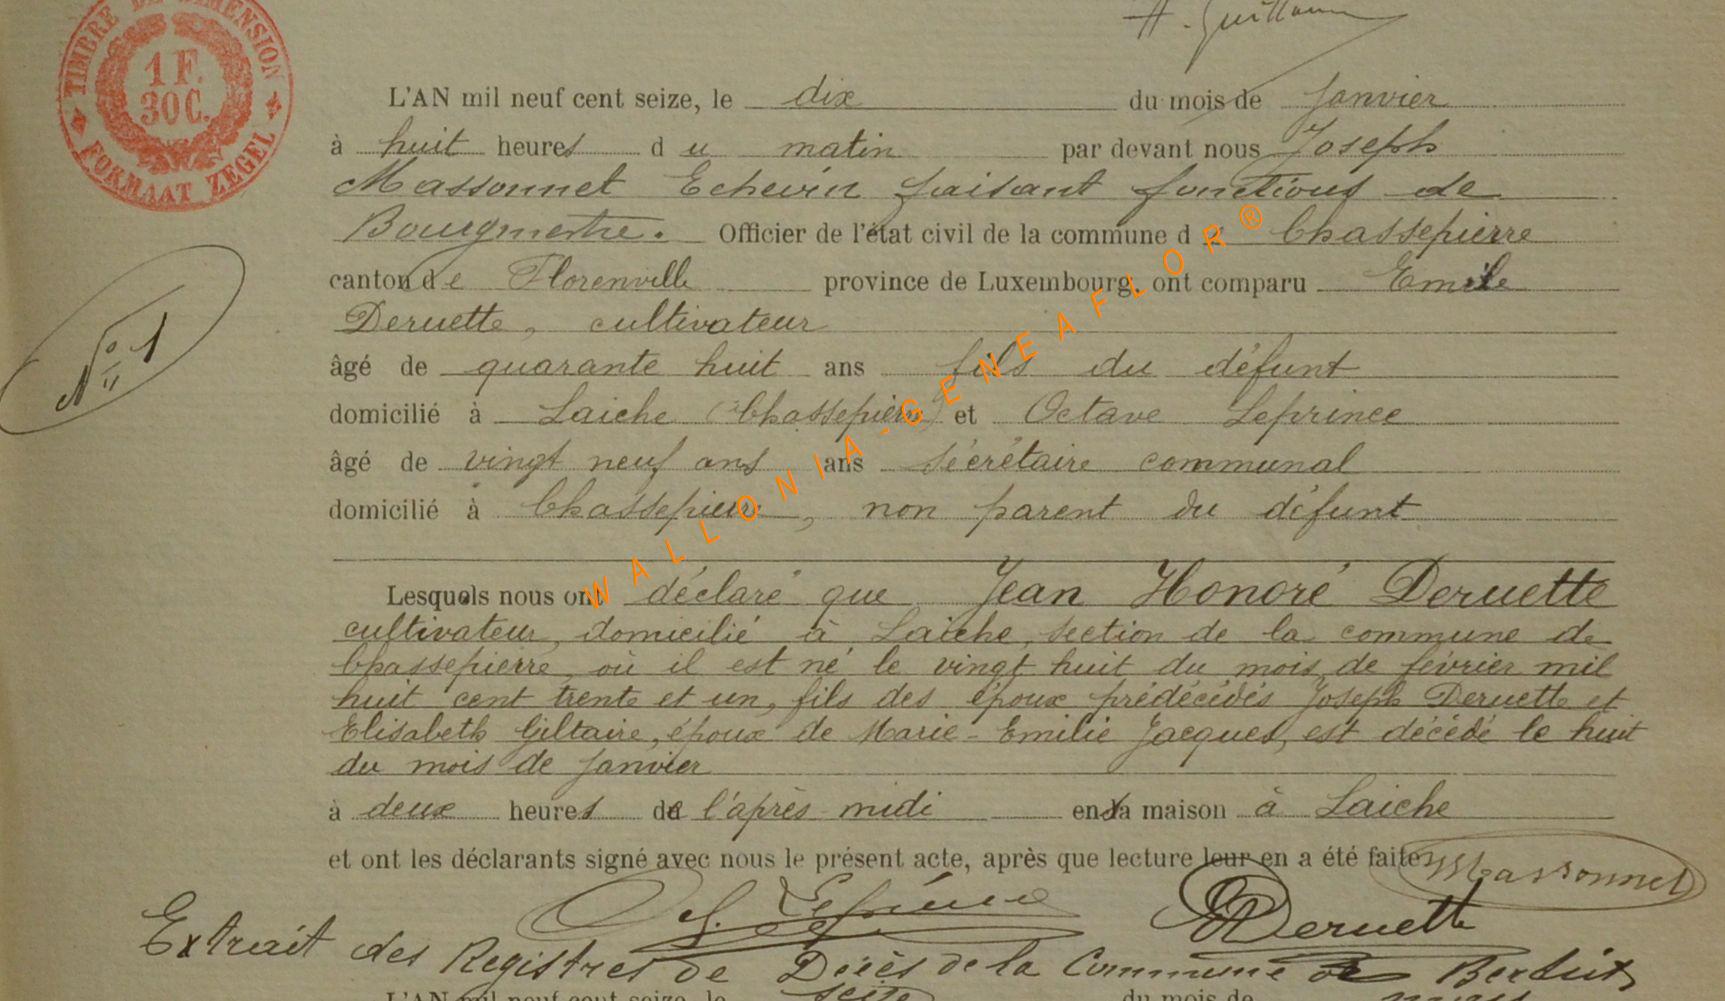 TIMBRE DE DIMENSION
1 F.
30 C.
FORMAAT ZEGEL
H. Guillaume
L'AN mil neuf cent seize, le dix du mois de Janvier
à huit heures du matin par devant nous Joseph
Massonnet Echevin faisant fonctions de
Bourgmestre. Officier de l'état civil de la commune de Chassepierre
canton de Florenville province de Luxembourg, ont comparu Emile
Deruette, cultivateur
N° 1
âgé de quarante huit ans fils du défunt
domicilié à Laiche (Chassepierre) et Octave Leprince
âgé de vingt neuf ans ans sécrétaire communal
domicilié à Chassepierre, non parent du défunt
Lesquels nous ont déclaré que Jean Honoré Deruette
cultivateur, domicilié à Laiche, section de la commune de
Chassepierre, où il est né le vingt huit du mois de février mil
huit cent trente et un, fils des époux prédécédés Joseph Deruette et
Elisabeth Giltaire, époux de Marie-Emilie Jacques, est décédé le huit
du mois de Janvier
à deux heures de l'après-midi en sa maison à Laiche
et ont les déclarants signé avec nous le présent acte, après que lecture leur en a été faite. Massonnet
Leprince Deruette
Extrait des Registres de Décès de la Commune de
L'AN mil neuf cent seize, le seize du mois de mars
WALLONIA-GENEAFLOR®